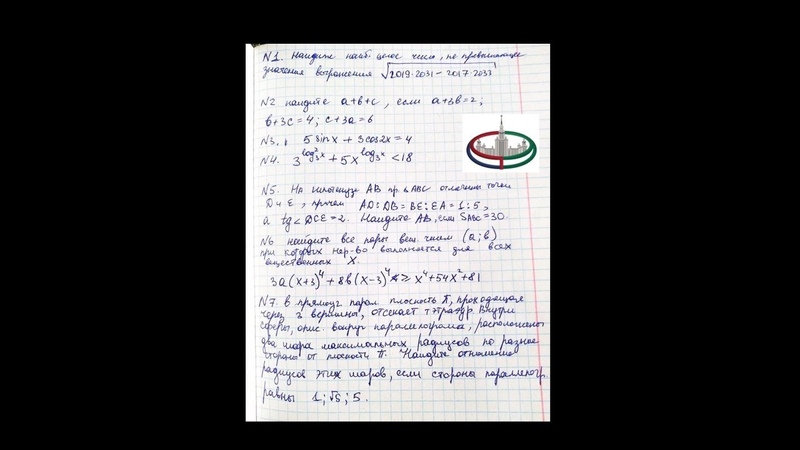 N1. Найдите наиб. целое число, не превышающее
значения выражения √2019·2031 − 2017·2033
N2 найдите a+b+c, если a+3b=2;
b+3c=4; c+3a=6
N3. 5 sin x + 3 cos 2x = 4
N4. 3^log₃²x + 5x^log₃x < 18
N5. На гипотенузе AB пр. Δ ABC отмечены точки
D и E, причем AD:DB = BE:EA = 1:5,
а tg∠DCE=2. Найдите AB, если SABC=30.
N6 найдите все пары вещ. чисел (a;b)
при которых нер-во выполняется для всех
вещественных X.
3a(x+3)⁴ + 8b(x−3)⁴ ≥ x⁴+54x²+81
N7. В прямоуг. парал. плоскость П, проходящая
через 3 вершины, отсекает тэтраэдр. Внутри
сферы, опис. вокруг параллелограмма, расположены
два шара максимальных радиусов по разные
стороны от плоскости П. Найдите отношение
радиусов этих шаров, если стороны параллелогр.
равны 1; √5; 5.